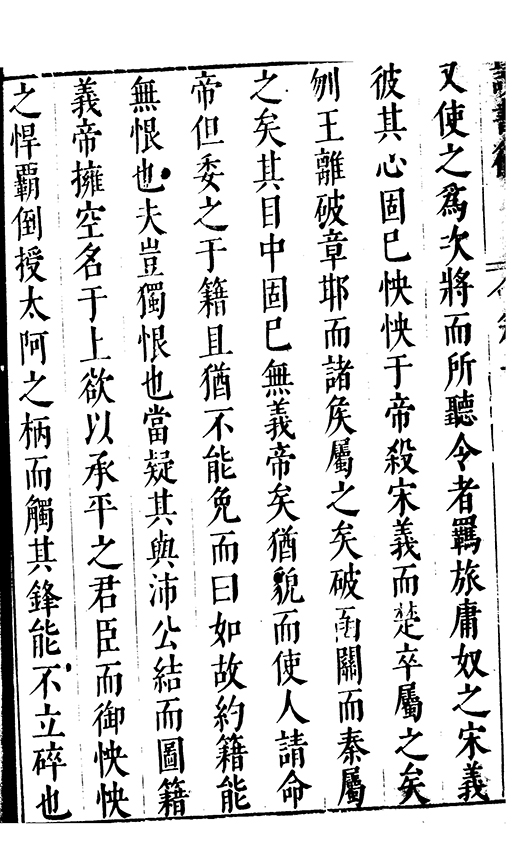 又使之為次將而所聽令者羈旅庸奴之宋義
彼其心固已怏怏于帝殺宋義而楚卒屬之矣
刎王離破章邯而諸侯屬之矣破函關而秦屬
之矣其目中固已無義帝矣猶貌而使人請命
帝但委之于籍且猶不能免而曰如故約籍能
無恨也夫豈獨恨也當疑其與沛公結而圖籍
義帝擁空名于上欲以承平之君臣而御怏怏
之悍霸倒授太阿之柄而觸其鋒能不立碎也